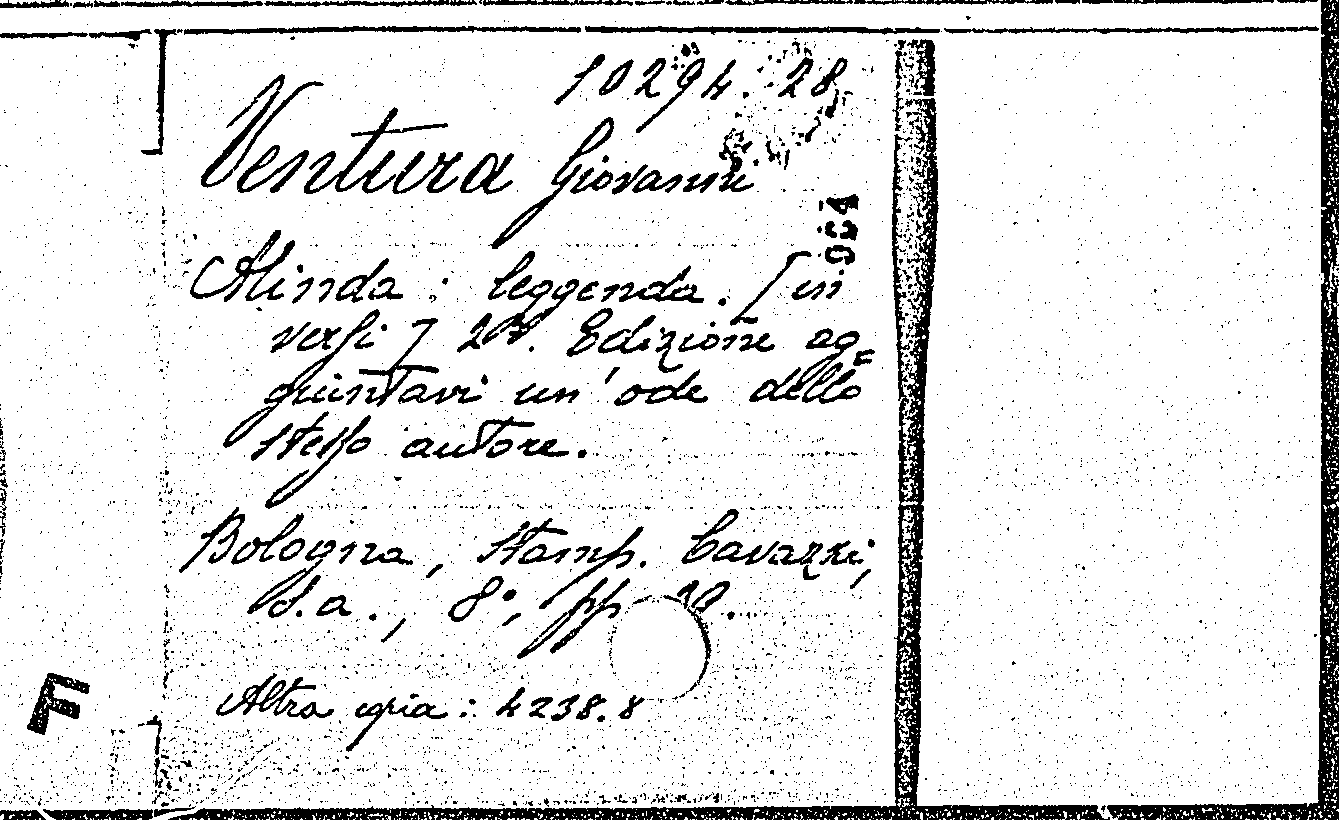 10294.28
Ventura Giovanni
964
Alinda : leggenda. [in
versi] 2ª. Edizione ag=
giuntavi un'ode dello
stesso autore.
Bologna, Stamp. Cavazzi,
S.a., 8°, pp
Altra copia : 4238.8
F